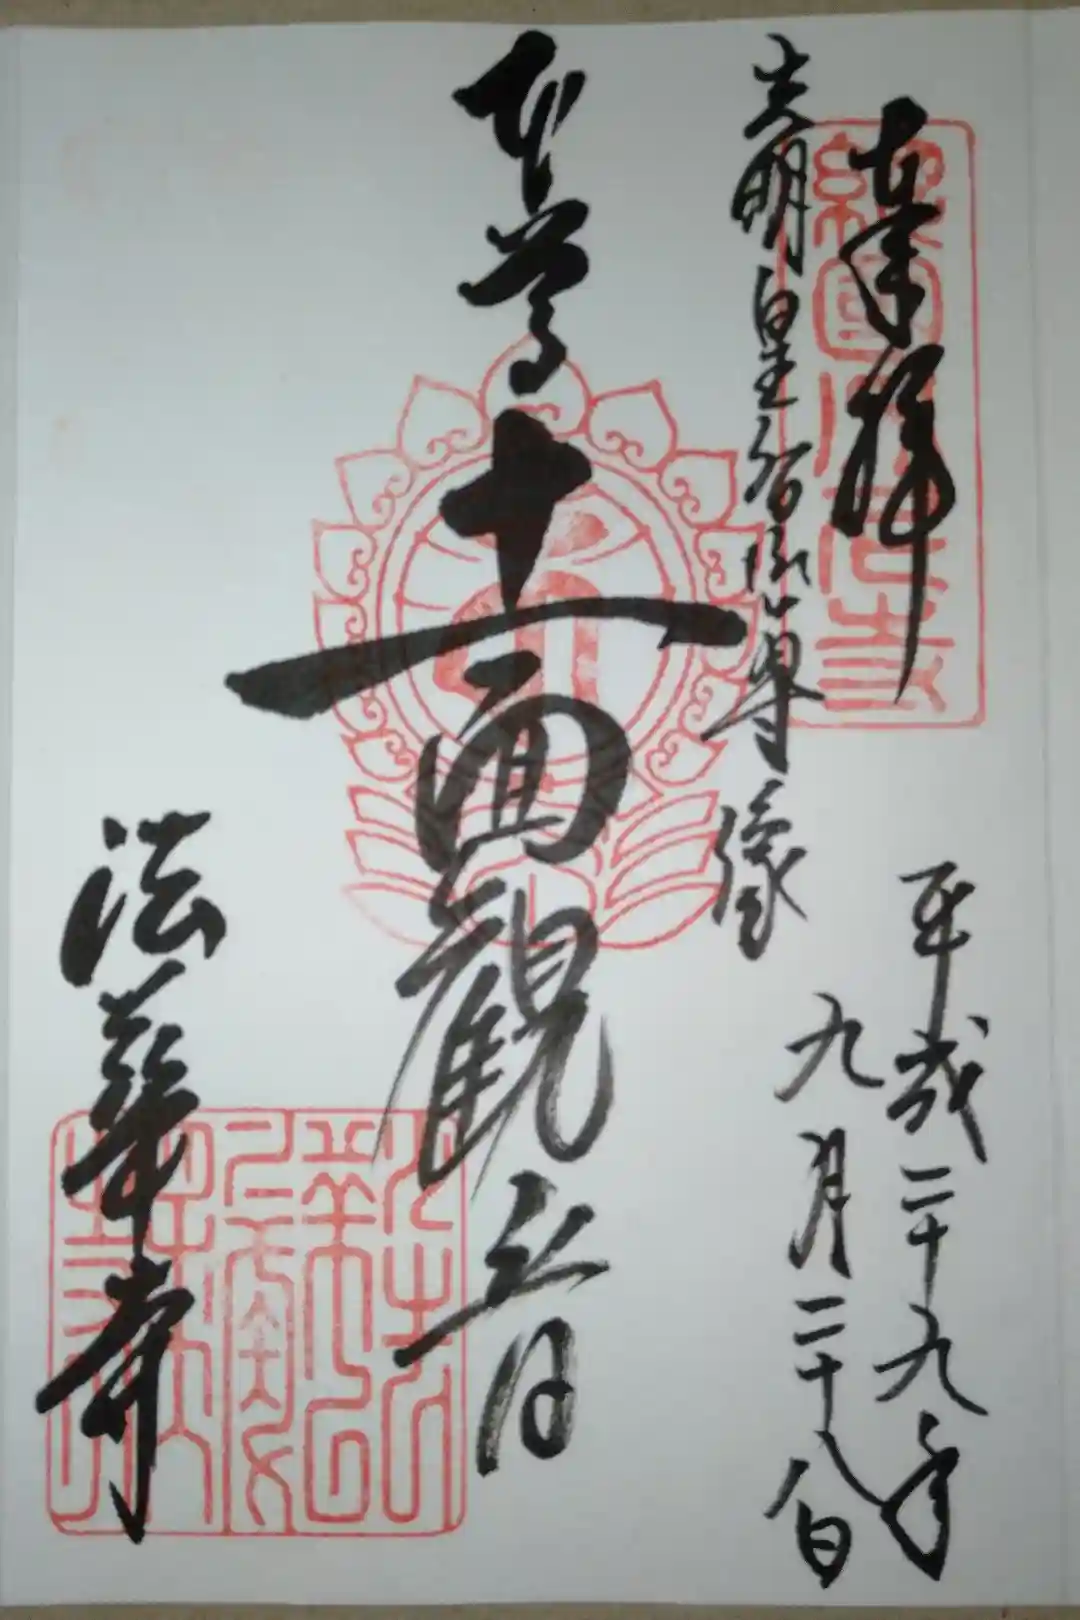 奉拝
平成二十九年
九月二十八日
光明皇后御尊像
本尊十一面観音
法華寺
総国分尼寺